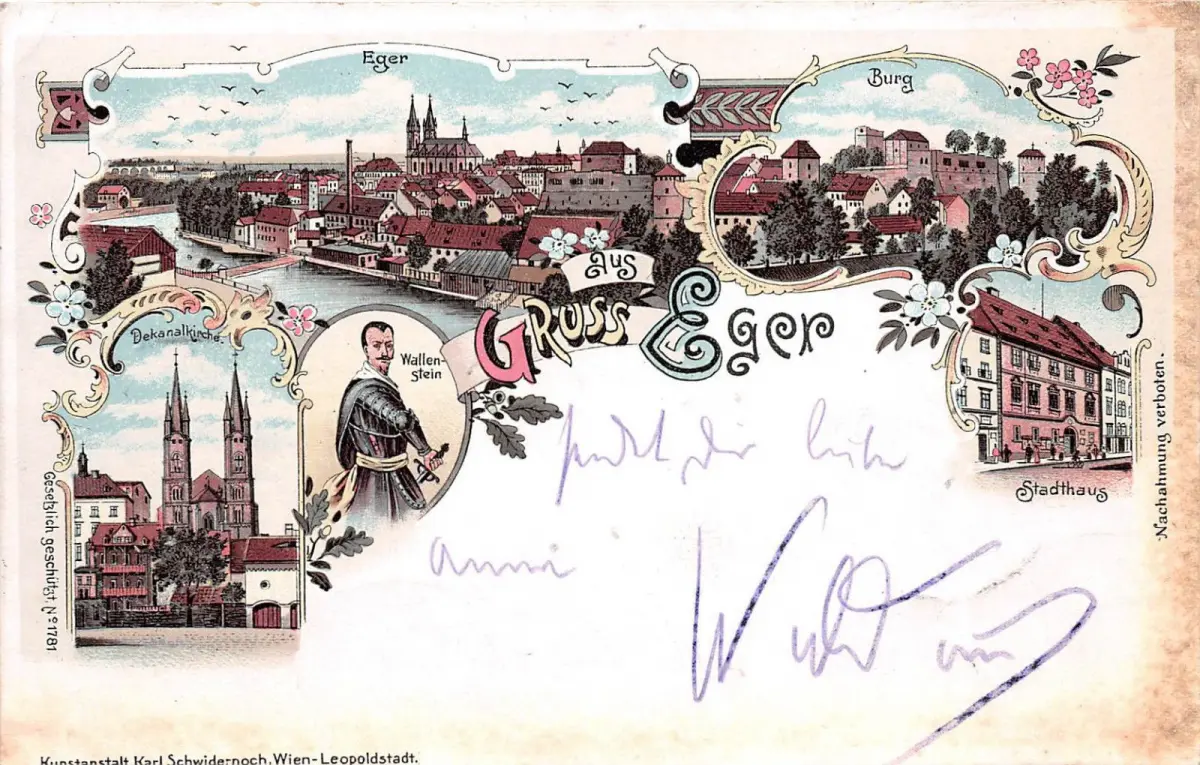 Eger
Burg
Gruss
aus
Eger
Dekanalkirche.
Wallen-
stein
Stadthaus
sendet dir liebe
Gesetzlich geschützt. No 1781
Nachahmung verboten.
Kunstanstalt Karl Schwidernoch, Wien-Leopoldstadt.